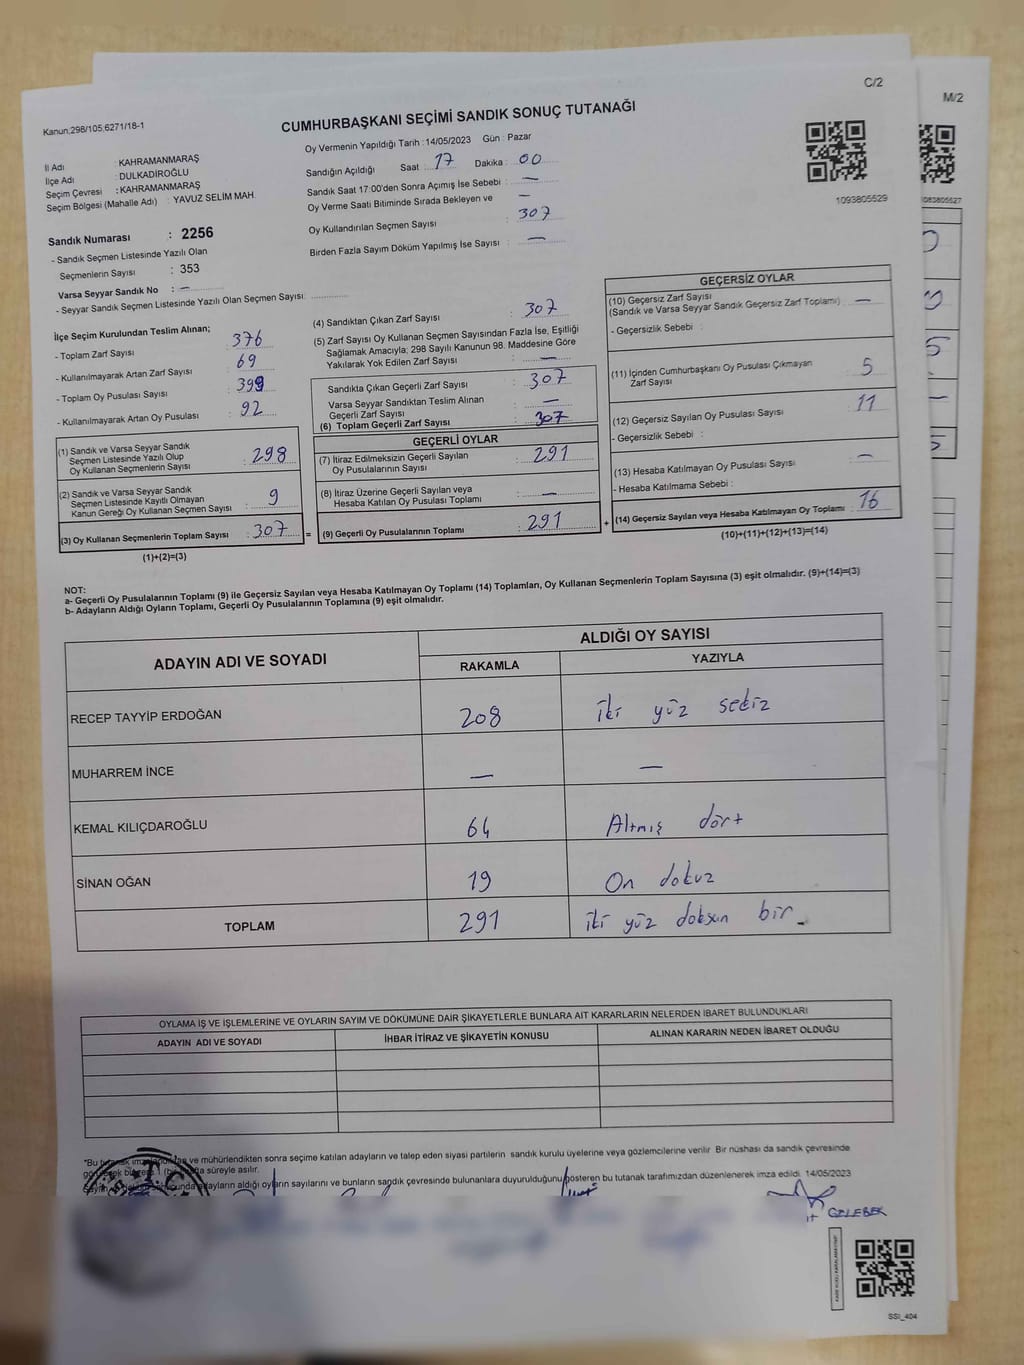 C/2
M/2
Kanun,298/105,6271/18-1
CUMHURBAŞKANI SEÇİMİ SANDIK SONUÇ TUTANAĞI
Oy Vermenin Yapıldığı Tarih : 14/05/2023 Gün : Pazar
İl Adı : KAHRAMANMARAŞ
İlçe Adı : DULKADİROĞLU
Seçim Çevresi : KAHRAMANMARAŞ
Seçim Bölgesi (Mahalle Adı) : YAVUZ SELİM MAH.
Sandığın Açıldığı Saat : 17 Dakika : 00
Sandık Saat 17:00'den Sonra Açımış İse Sebebi : —
Oy Verme Saati Bitiminde Sırada Bekleyen ve —
Oy Kullandırılan Seçmen Sayısı : 307
Birden Fazla Sayım Döküm Yapılmış İse Sayısı : —
1093805529
1083805527
Sandık Numarası : 2256
- Sandık Seçmen Listesinde Yazılı Olan
Seçmenlerin Sayısı : 353
Varsa Seyyar Sandık No : —
- Seyyar Sandık Seçmen Listesinde Yazılı Olan Seçmen Sayısı:
İlçe Seçim Kurulundan Teslim Alınan;
- Toplam Zarf Sayısı : 376
- Kullanılmayarak Artan Zarf Sayısı : 69
- Toplam Oy Pusulası Sayısı : 399
- Kullanılmayarak Artan Oy Pusulası : 92
(1) Sandık ve Varsa Seyyar Sandık
Seçmen Listesinde Yazılı Olup
Oy Kullanan Seçmenlerin Sayısı : 298
(2) Sandık ve Varsa Seyyar Sandık
Seçmen Listesinde Kayıtlı Olmayan
Kanun Gereği Oy Kullanan Seçmen Sayısı : 9
(3) Oy Kullanan Seçmenlerin Toplam Sayısı : 307 =
(1)+(2)=(3)
(4) Sandıktan Çıkan Zarf Sayısı : 307
(5) Zarf Sayısı Oy Kullanan Seçmen Sayısından Fazla İse, Eşitliği
Sağlamak Amacıyla; 298 Sayılı Kanunun 98. Maddesine Göre
Yakılarak Yok Edilen Zarf Sayısı : —
Sandıkta Çıkan Geçerli Zarf Sayısı : 307
Varsa Seyyar Sandıktan Teslim Alınan
Geçerli Zarf Sayısı : —
(6) Toplam Geçerli Zarf Sayısı : 307
GEÇERLİ OYLAR
(7) İtiraz Edilmeksizin Geçerli Sayılan
Oy Pusulalarının Sayısı : 291
(8) İtiraz Üzerine Geçerli Sayılan veya
Hesaba Katılan Oy Pusulası Toplamı : —
(9) Geçerli Oy Pusulalarının Toplamı : 291 +
GEÇERSİZ OYLAR
(10) Geçersiz Zarf Sayısı
(Sandık ve Varsa Seyyar Sandık Geçersiz Zarf Toplamı) : —
- Geçersizlik Sebebi :
(11) İçinden Cumhurbaşkanı Oy Pusulası Çıkmayan
Zarf Sayısı : 5
(12) Geçersiz Sayılan Oy Pusulası Sayısı : 11
- Geçersizlik Sebebi :
(13) Hesaba Katılmayan Oy Pusulası Sayısı : —
- Hesaba Katılmama Sebebi :
(14) Geçersiz Sayılan veya Hesaba Katılmayan Oy Toplamı : 16
(10)+(11)+(12)+(13)=(14)
NOT:
a- Geçerli Oy Pusulalarının Toplamı (9) ile Geçersiz Sayılan veya Hesaba Katılmayan Oy Toplamı (14) Toplamları, Oy Kullanan Seçmenlerin Toplam Sayısına (3) eşit olmalıdır. (9)+(14)=(3)
b- Adayların Aldığı Oyların Toplamı, Geçerli Oy Pusulalarının Toplamına (9) eşit olmalıdır.
ADAYIN ADI VE SOYADI ALDIĞI OY SAYISI
RAKAMLA YAZIYLA
RECEP TAYYİP ERDOĞAN 208 iki yüz sekiz
MUHARREM İNCE — —
KEMAL KILIÇDAROĞLU 64 Altmış dört
SİNAN OĞAN 19 On dokuz
TOPLAM 291 iki yüz doksan bir
OYLAMA İŞ VE İŞLEMLERİNE VE OYLARIN SAYIM VE DÖKÜMÜNE DAİR ŞİKAYETLERLE BUNLARA AİT KARARLARIN NELERDEN İBARET BULUNDUKLARI
ADAYIN ADI VE SOYADI İHBAR İTİRAZ VE ŞİKAYETİN KONUSU ALINAN KARARIN NEDEN İBARET OLDUĞU
"Bu ve mühürlendikten sonra seçime katılan adayların ve talep eden siyasi partilerin sandık kurulu üyelerine veya gözlemcilerine verilir Bir nüshası da sandık çevresinde
süreyle asılır.
adayların aldığı oyların sayılarını ve bunların sandık çevresinde bulunanlara duyurulduğunu gösteren bu tutanak tarafımızdan düzenlenerek imza edildi. 14/05/2023
T.C.
SSI_404